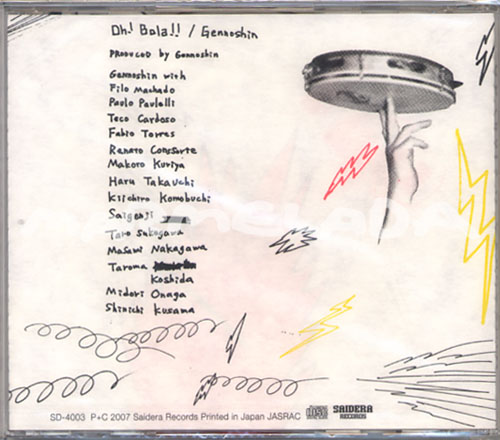 Oh! Bola!! / Gennoshin
PRODUCED by Gennoshin
Gennoshin with
Filo Machado
Paulo Paulelli
Teco Cardoso
Fabio Torres
Renato Consorte
Makoto Kuriya
Haru Takauchi
Kiichiro Komobuchi
Saigenji
Taro Sukegawa
Masami Nakagawa
Taroma
Koshida
Midori Onaga
Shinichi Kusama
SD-4003 P+C 2007 Saidera Records Printed in Japan JASRAC
SAIDERA
RECORDS